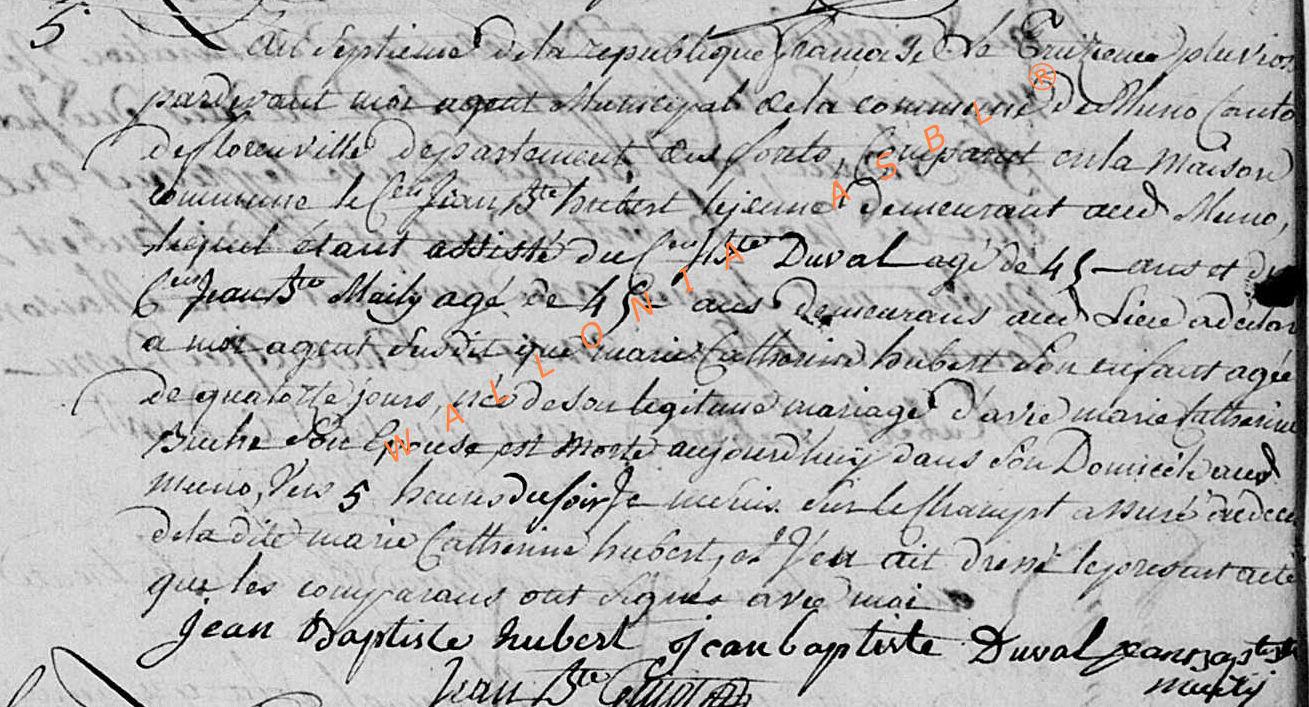 5
An Septieme de la republique francaise le Treizieme pluvios
pardevant moi agent Municipal de la commune de Muno Canto
de florenville departement des forets, Comparait en la Maison
commune le Cen Jean Bte hubert lejeune demeurant aud Muno,
lequel étant assisté du Cen J Bte Duval agé de 45 ans et du
Cen Jean Bte Maily agé de 45 ans demeurans aud Lieu a declaré
a moi agent susdit que marie Catherine hubert son enfant agée
de quatorze jours, née de son legitime mariage avec marie Catherine
son Epouse est Morte aujourdhuy dans son Domicile aud
muno, vers 5 heures du soir Je me suis sur le Champt assuré du deces
de la dite marie Catherine hubert, et J'en ait dressé le present acte
que les comparans ont signes avec moi
jean Baptiste hubert jean baptiste Duval jean baptiste
Jean Bte
WALLONIA ASBL ®